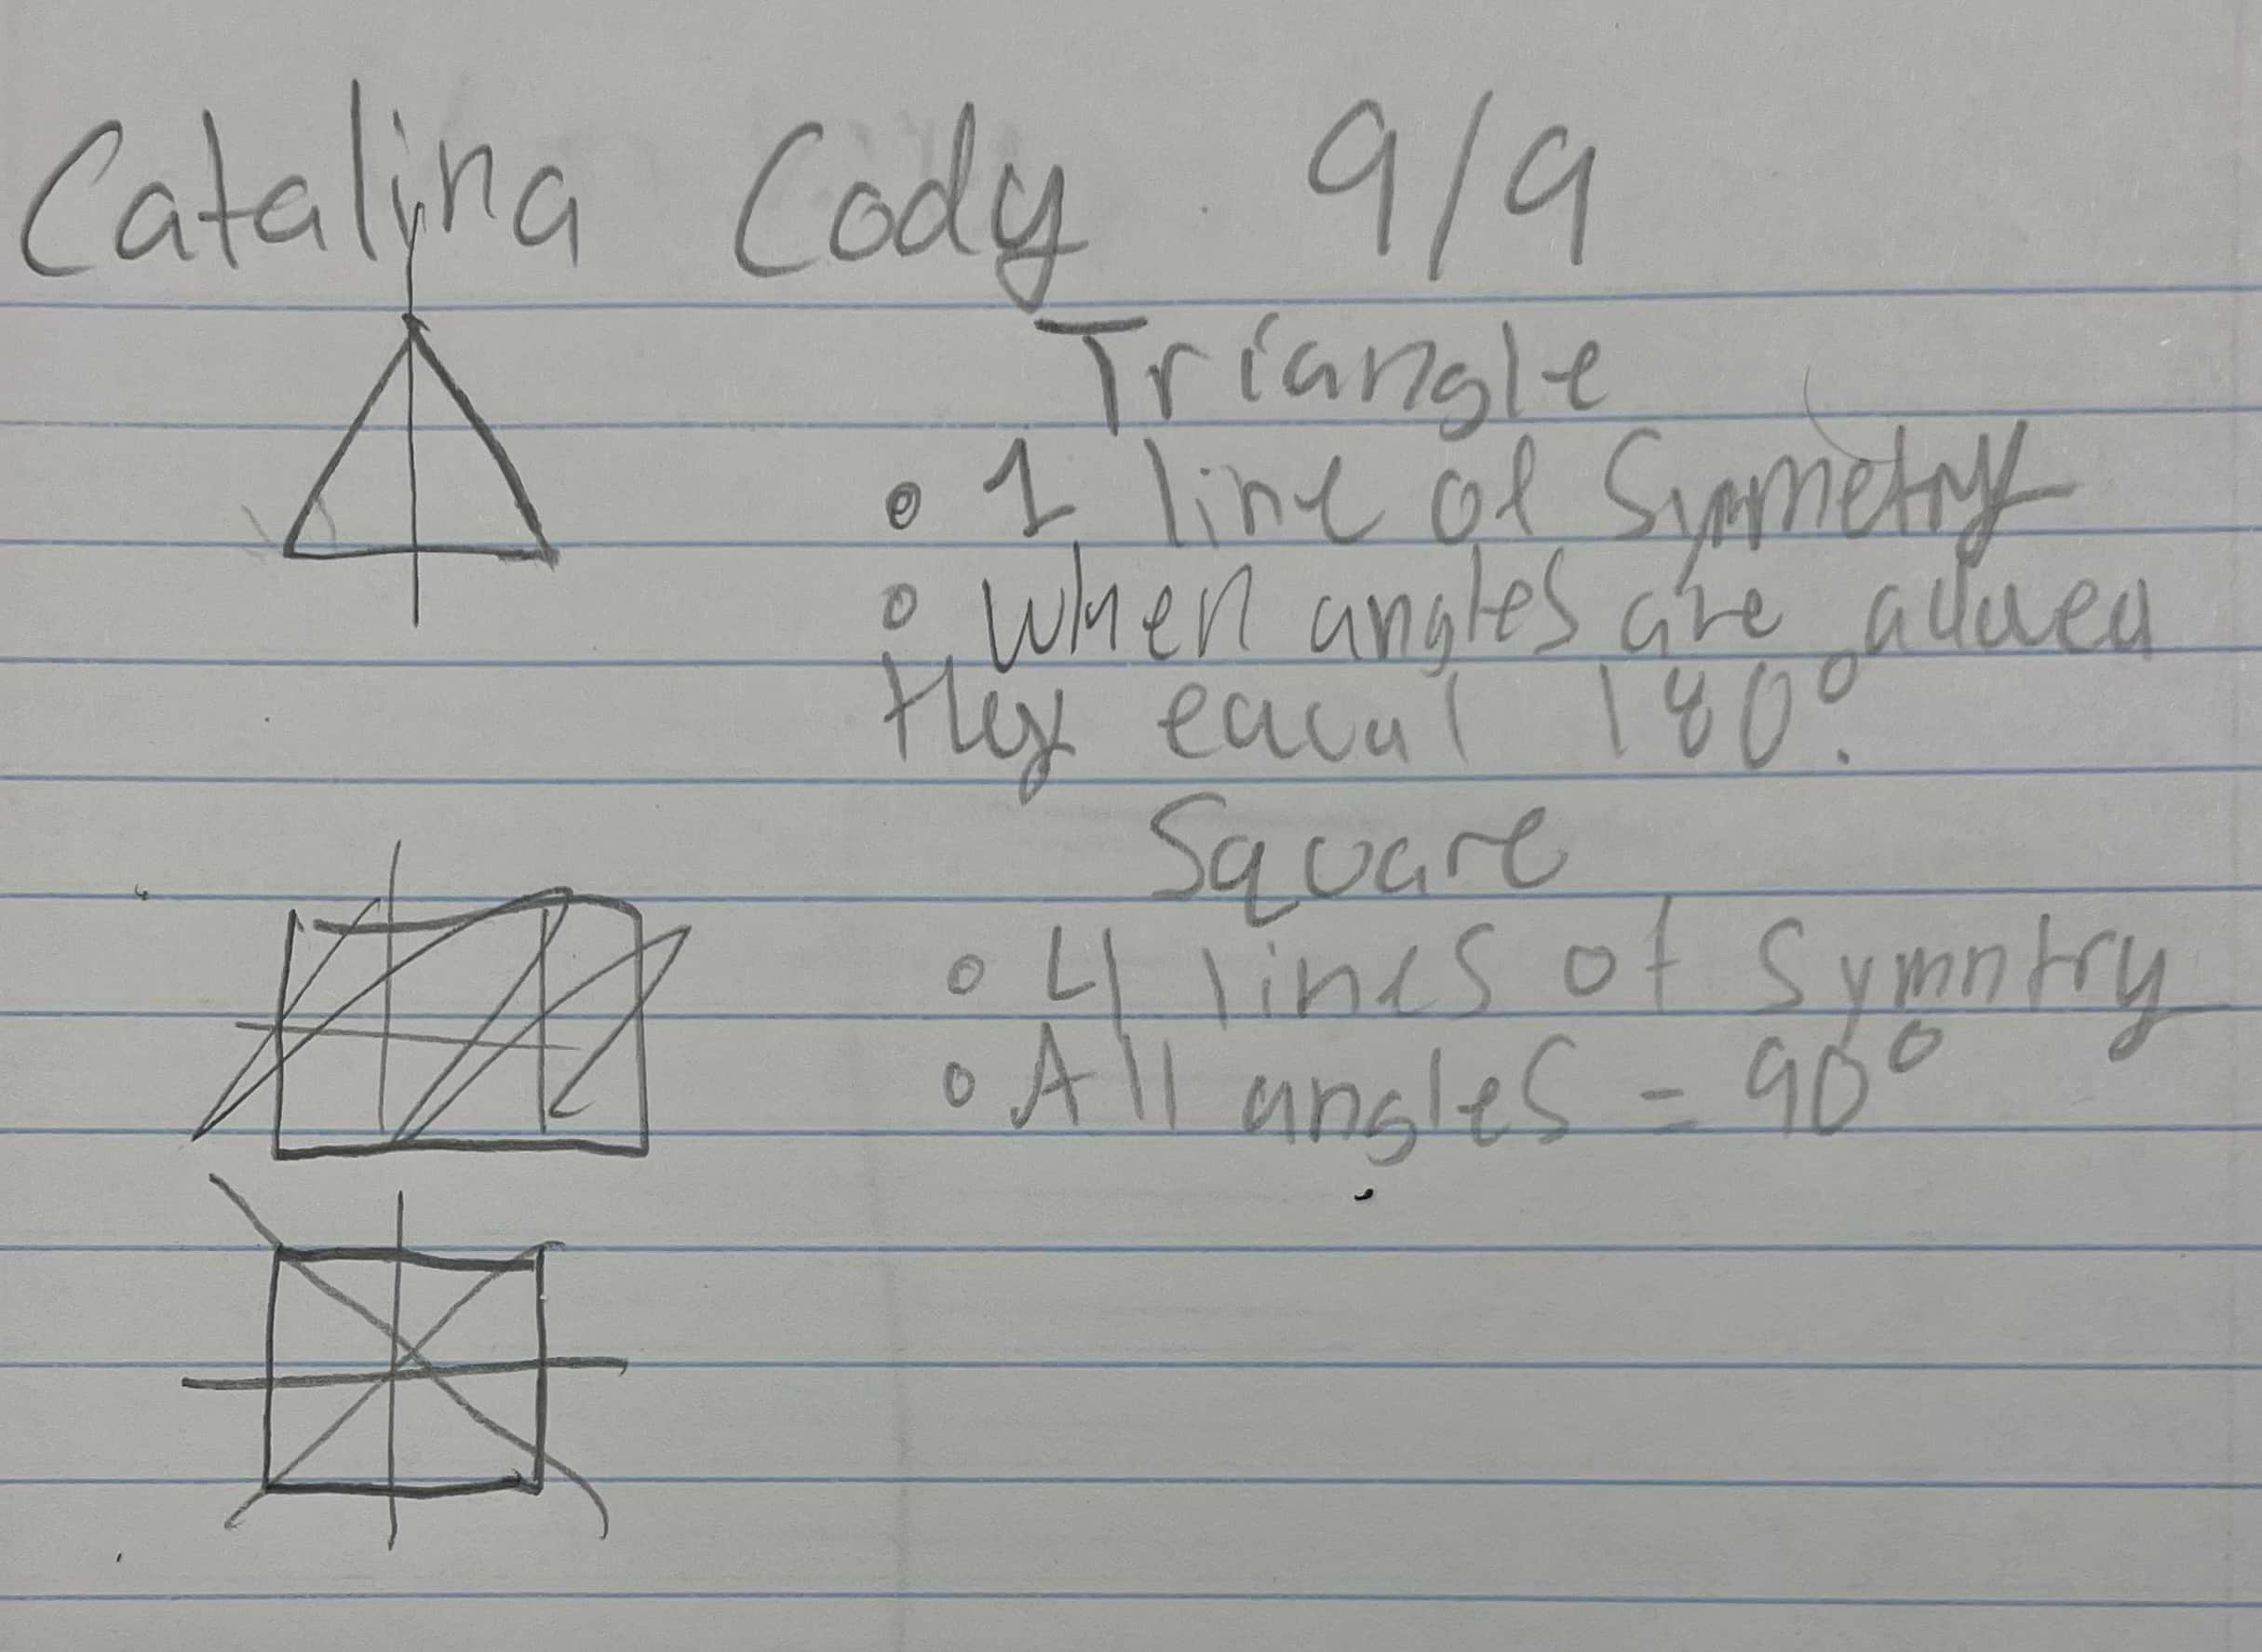 Catalina Cody 9/9
Triangle
• 1 line of Symmetry
• When angles are added
they equal 180°.
Square
• 4 lines of Symntry
• All angles = 90°